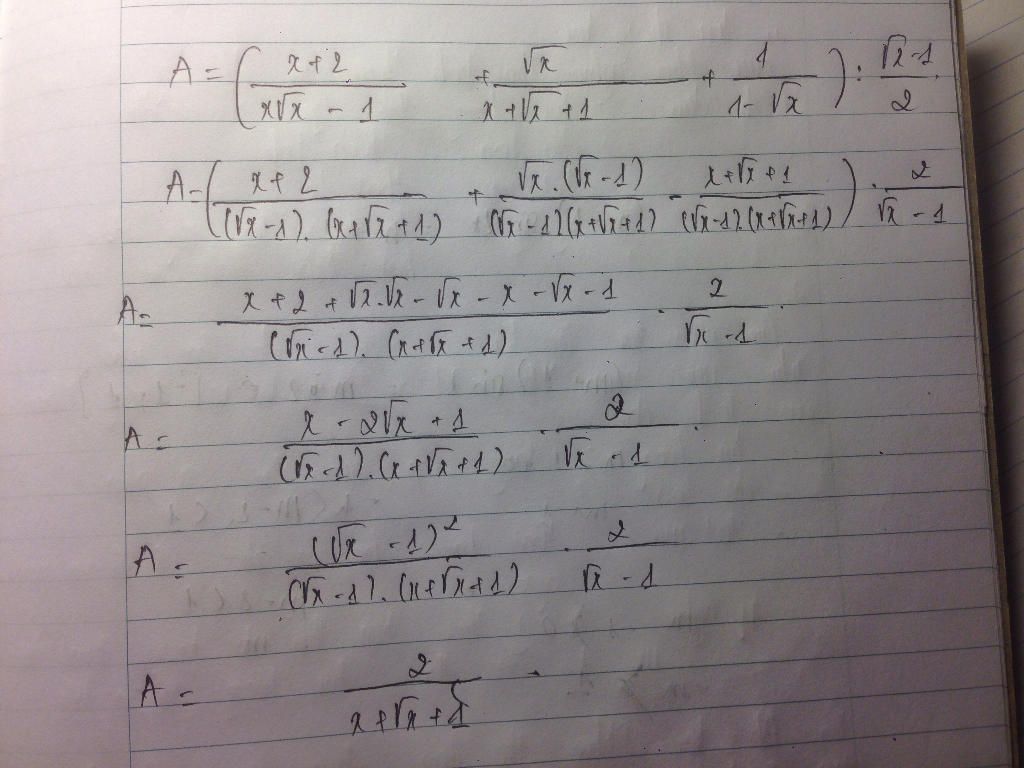 A = ( (x+2)/(x√x - 1) + √x/(x+√x+1) + 1/(1-√x) ) : (√x-1)/2.
A = ( (x+2)/((√x-1).(x+√x+1)) + (√x.(√x-1))/((√x-1)(x+√x+1)) - (x+√x+1)/((√x-1).(x+√x+1)) ) . 2/(√x-1)
A = (x+2+√x.√x-√x-x-√x-1)/((√x-1).(x+√x+1)) . 2/(√x-1).
A = (x-2√x+1)/((√x-1).(x+√x+1)) . 2/(√x-1).
A = (√x-1)²/((√x-1).(x+√x+1)) . 2/(√x-1)
A = 2/(x+√x+1) .